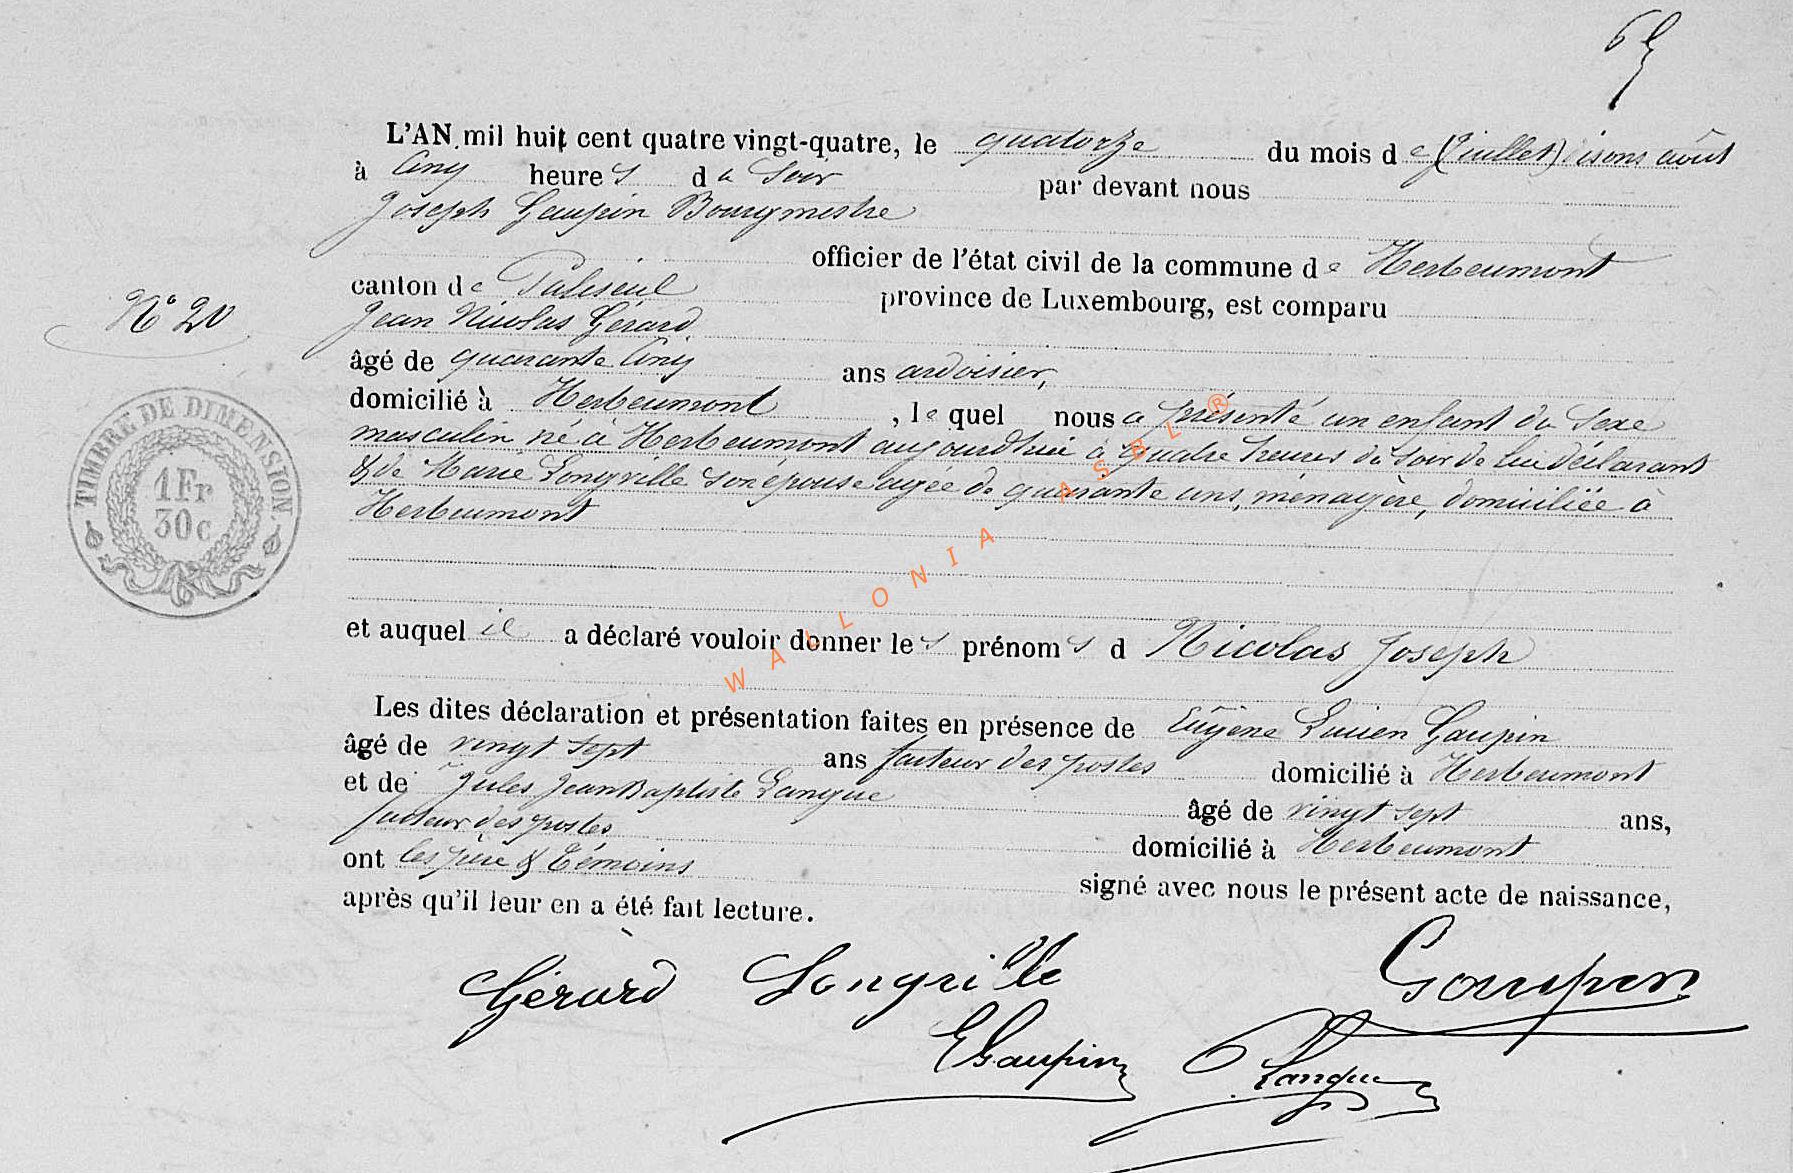 65
L'AN mil huit cent quatre vingt-quatre, le quatorze du mois de (juillet) disons août
à cinq heures du soir par devant nous
Joseph Gaupin Bourgmestre
officier de l'état civil de la commune de Herbeumont
canton de Paliseul province de Luxembourg, est comparu
N° 20
Jean Nicolas Gérard
âgé de quarante cinq ans ardoisier,
domicilié à Herbeumont, le quel nous a présenté un enfant du sexe
masculin né à Herbeumont aujourd'hui à quatre heures du soir de lui déclarant
& de Marie Longville son épouse agée de quarante ans, ménagère, domiciliée à
Herbeumont
TIMBRE DE DIMENSION.
1 Fr
30 c
WALLONIA ASBL ®
et auquel il a déclaré vouloir donner les prénoms d Nicolas Joseph
Les dites déclaration et présentation faites en présence de Eugène Lucien Gaupin
âgé de vingt sept ans facteur des postes domicilié à Herbeumont
et de Jules Jean Baptiste Langue âgé de vingt sept ans,
facteur des postes domicilié à Herbeumont
ont les père & témoins signé avec nous le présent acte de naissance,
après qu'il leur en a été fait lecture.
Gérard Longville Goupin
E Gaupin Langue